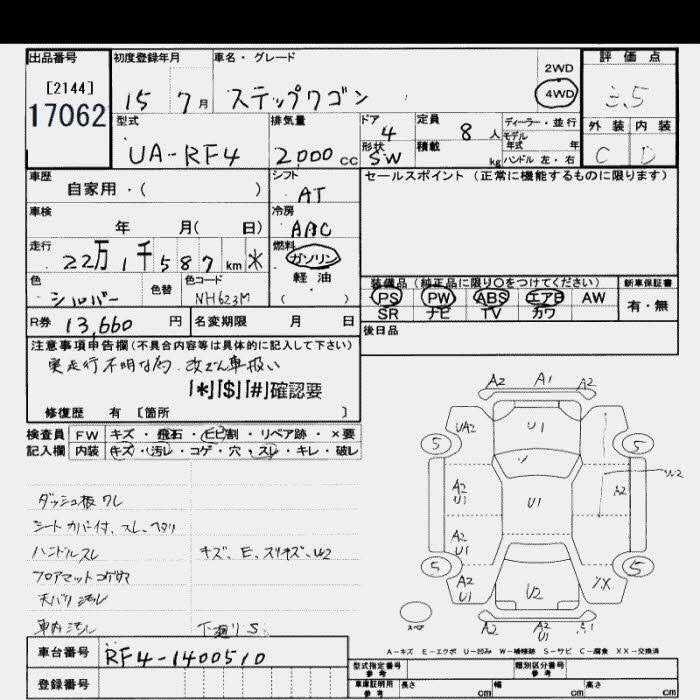 出品番号
[2144]
17062
初度登録年月
15 7月
車名・グレード
ステップワゴン
2WD
4WD
評価点
3.5
外装 内装
C D
型式
UA-RF4
排気量
2,000cc
ドア
4
形状
SW
定員
8人
積載
kg
ディーラー・並行
モデル年式 年
ハンドル 左・右
車歴
自家用・( )
シフト
AT
セールスポイント(正常に機能するものに限ります)
車検
年 月( 日)
冷房
AAC
走行
22万1千587km *
燃料
ガソリン
軽油
( )
色
シルバー
色替
色コード
NH623M
装備品(純正品に限り○をつけてください)
PS PW ABS エアB AW
SR ナビ TV カワ
新車保証書
有・無
R券 13,660円
名変期限 月 日
後日品
注意事項申告欄(不具合内容等は具体的に記入して下さい)
実走行不明な為、改ざん車扱い
[*][$][#]確認要
修復歴 有 [箇所 ]
検査員 FW キズ・飛石・ヒビ割・リペア跡・×要
記入欄 内装 キズ・汚レ・コゲ・穴・スレ・キレ・破レ
ダッシュ板ワレ
シートカバー付、スレ、ヘタリ
ハンドルスレ
キズ、E、スリキズ、W2
フロアマットコゲ
天バリ汚レ
車内汚レ
下廻りS.
A2 A1 A2
UA2 U1
5 5
A2 U1
U1
A2
W2
A2 U1
5 5
A2 U1
U2
XX
A2 A2 U1 S1
A-キズ E-エクボ U-凹み W-補修跡 S-サビ C-腐食 XX-交換済
車台番号 RF4-1400510
登録番号
型式指定番号 参考
類別区分番号 参考
車庫証明用 参考 長さ cm 幅 cm 高さ cm